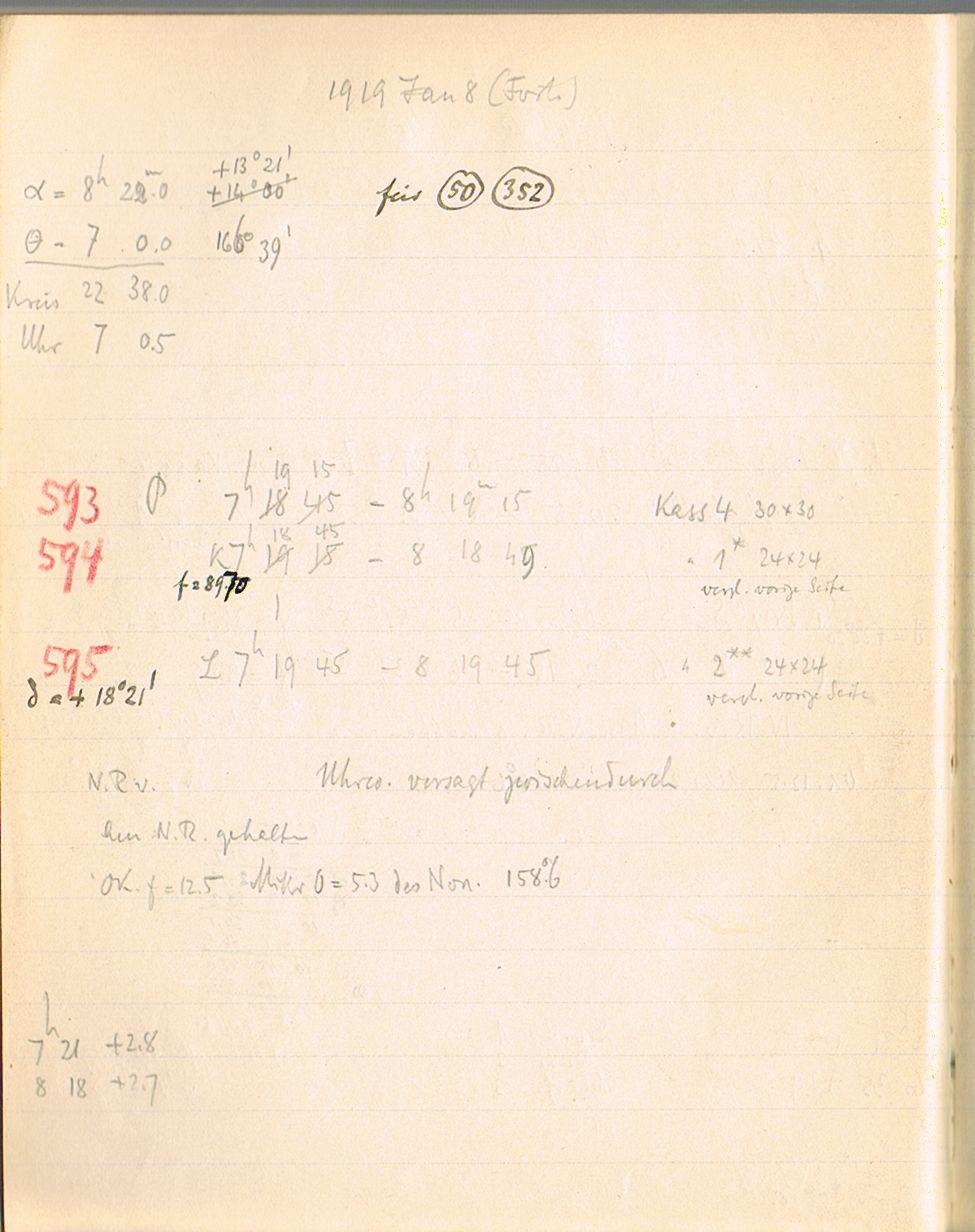 1919 Jan 8 (Forts.)
+13° 21'
α = 8h 22m.0 +14° 00'
für 50 352
Θ = 7 0.0 166° 39'
Kreis 22 38.0
Uhr 7 0.5
19 15
593 P 7h 18 45 – 8h 19m 15 Kass 4 30×30
18 45
594 K 7h 19 15 – 8 18 45 " 1* 24×24
f=8970 vergl. vorige Seite
595 L 7h 19 45 – 8 19 45 " 2** 24×24
δ = + 18° 21' vergl. vorige Seite
N.R. v. Uhrw. versagt zwischendurch
N.R. gehalten
Ok. f = 12.5 Mikr 0 = 5.3 des Non. 158°.6
7h 21 +2.8
8 18 +2.7